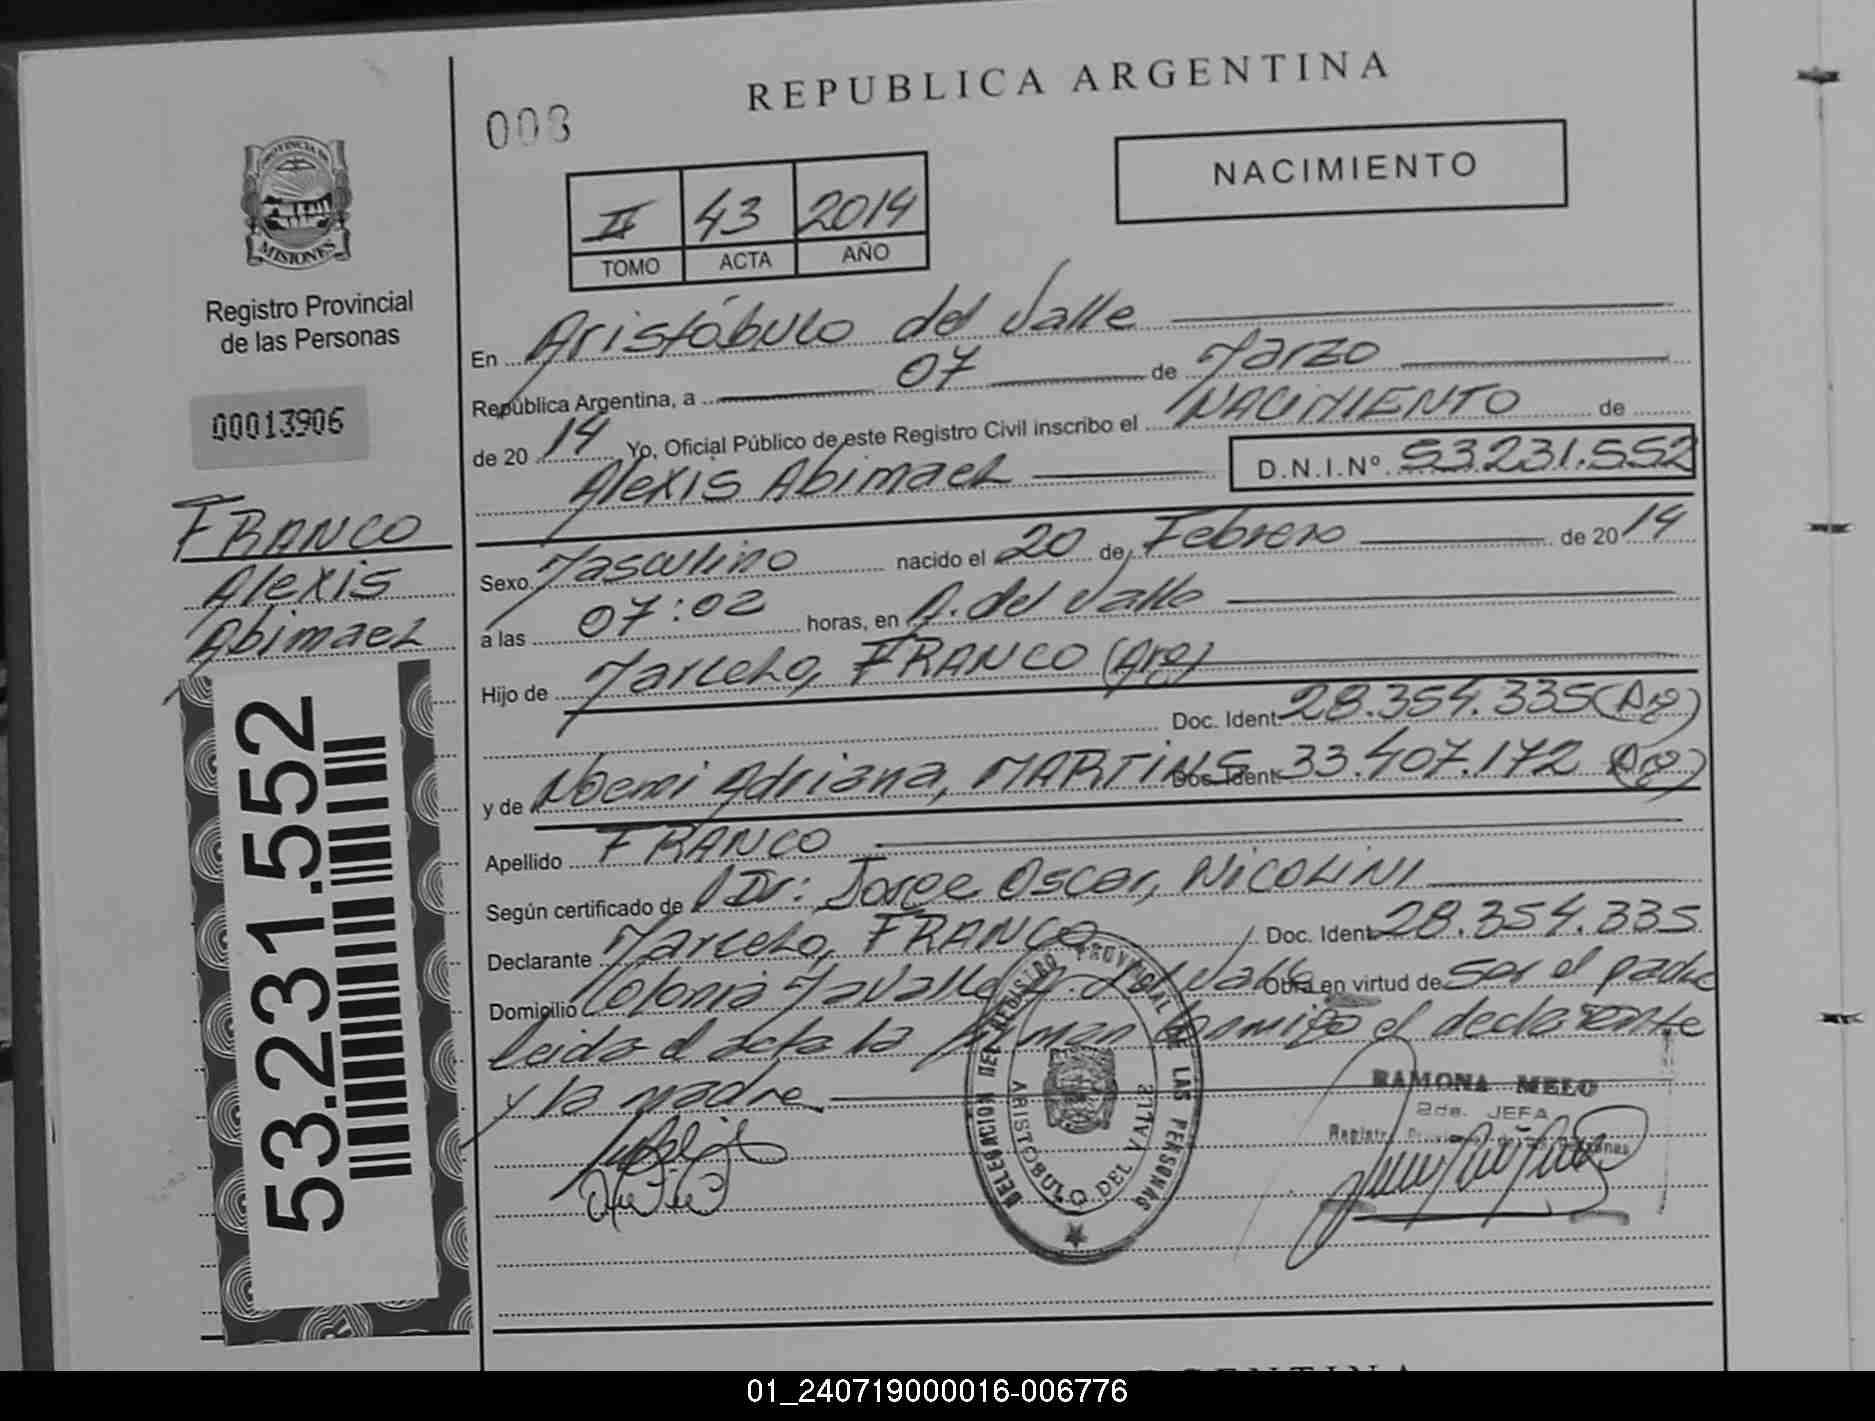 REPUBLICA ARGENTINA
008
NACIMIENTO
II 43 2014
TOMO ACTA AÑO
PROVINCIA DE
MISIONES
Registro Provincial
de las Personas
00013906
FRANCO
Alexis
Abimael
53.231.552
En Aristóbulo del Valle
República Argentina, a 07 de Marzo
de 20 14 Yo, Oficial Público de este Registro Civil inscribo el NACIMIENTO de
Alexis Abimael D.N.I.Nº. 53.231.552
Sexo Masculino nacido el 20 de Febrero de 20 14
a las 07:02 horas, en A. del Valle
Hijo de Marcelo, FRANCO (Arg)
Doc. Ident. 28.354.335 (Arg)
y de Noemi Adriana, MARTINS Doc. Ident. 33.407.172 (Arg)
Apellido FRANCO
Según certificado de Dr: Jorge Oscar, NICOLINI
Declarante Marcelo, FRANCO Doc. Ident. 28.354.335
Domicilio Colonia A. del Valle Obra en virtud de ser el padre
Leida el acta la firman conmigo el declarante
y la madre
DELEGACION DEL REGISTRO PROVINCIAL DE LAS PERSONAS
ARISTOBULO DEL VALLE
RAMONA MELO
2da. JEFA
01_240719000016-006776